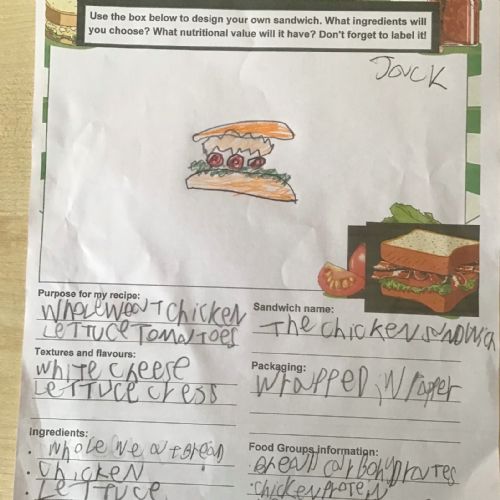 Use the box below to design your own sandwich. What ingredients will
you choose? What nutritional value will it have? Don't forget to label it!
Jack
Purpose for my recipe:
wholeweat chicken
Lettuce Tomatoes
Sandwich name:
The chicken sandwich
Textures and flavours:
white cheese
Lettuce cress
Packaging:
wrapped, wrapper
Ingredients:
• whole weat Bread
• chicken
• Lettuce
Food Groups information:
• Bread carbohydrates
• chicken protein